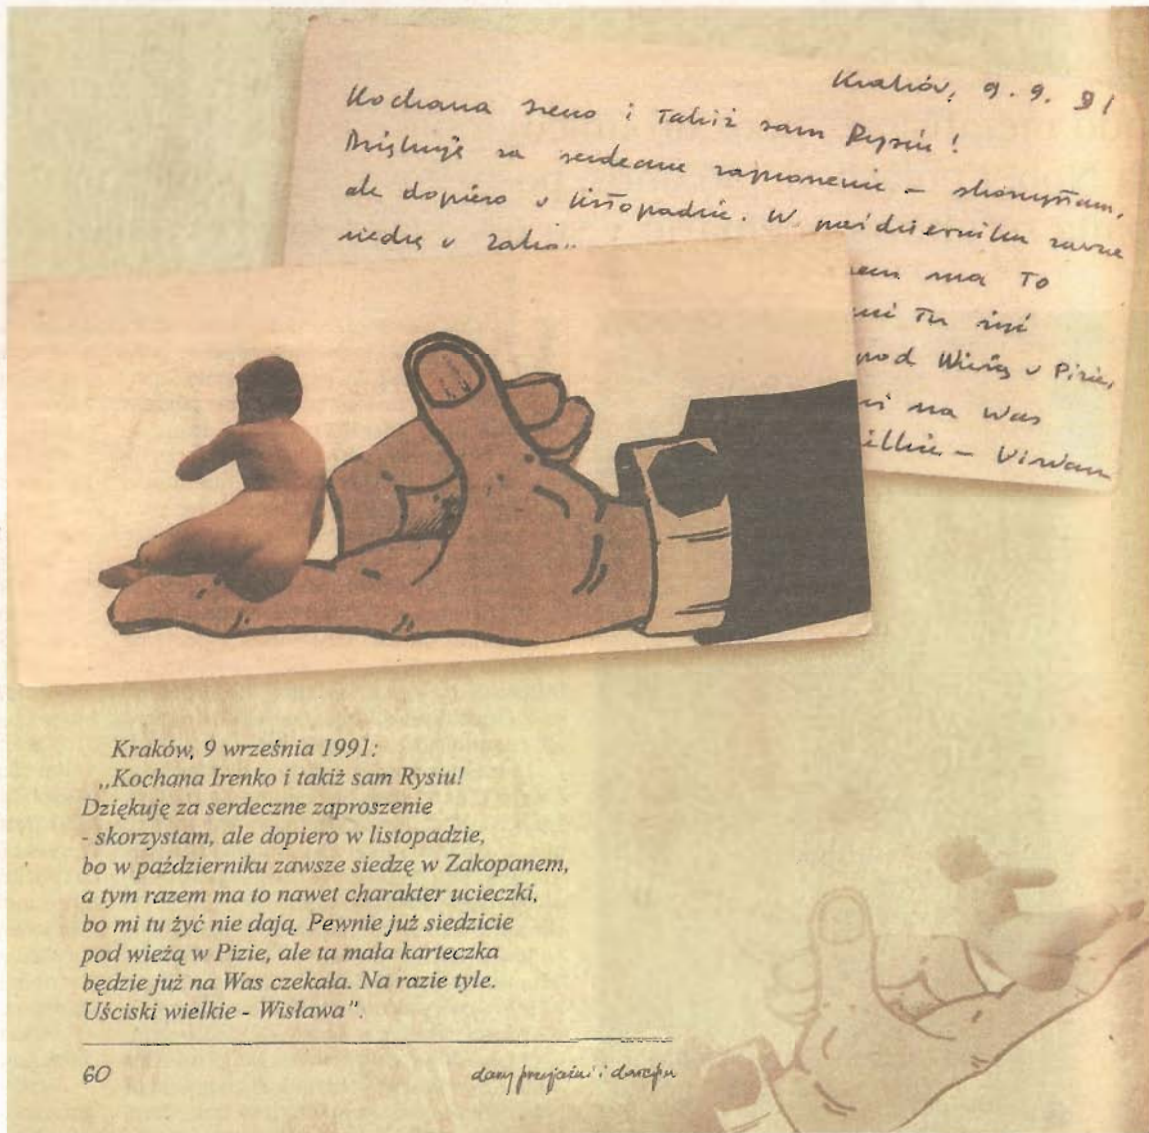 Kraków, 9.9.91
Kochana Ireno i takiż sam Rysiu!
Dziękuję za serdeczne zaproszenie – skorzystam,
ale dopiero w listopadzie. W październiku zawsze
siedzę w Zako
ma to
Tu żyć
pod Wieżą w Pizie,
na Was
Kraków, 9 września 1991:
„Kochana Irenko i takiż sam Rysiu!
Dziękuję za serdeczne zaproszenie
- skorzystam, ale dopiero w listopadzie,
bo w październiku zawsze siedzę w Zakopanem,
a tym razem ma to nawet charakter ucieczki,
bo mi tu żyć nie dają. Pewnie już siedzicie
pod wieżą w Pizie, ale ta mała karteczka
będzie już na Was czekała. Na razie tyle.
Uściski wielkie - Wisława”.
60
dary przyjaźni i dowcipu